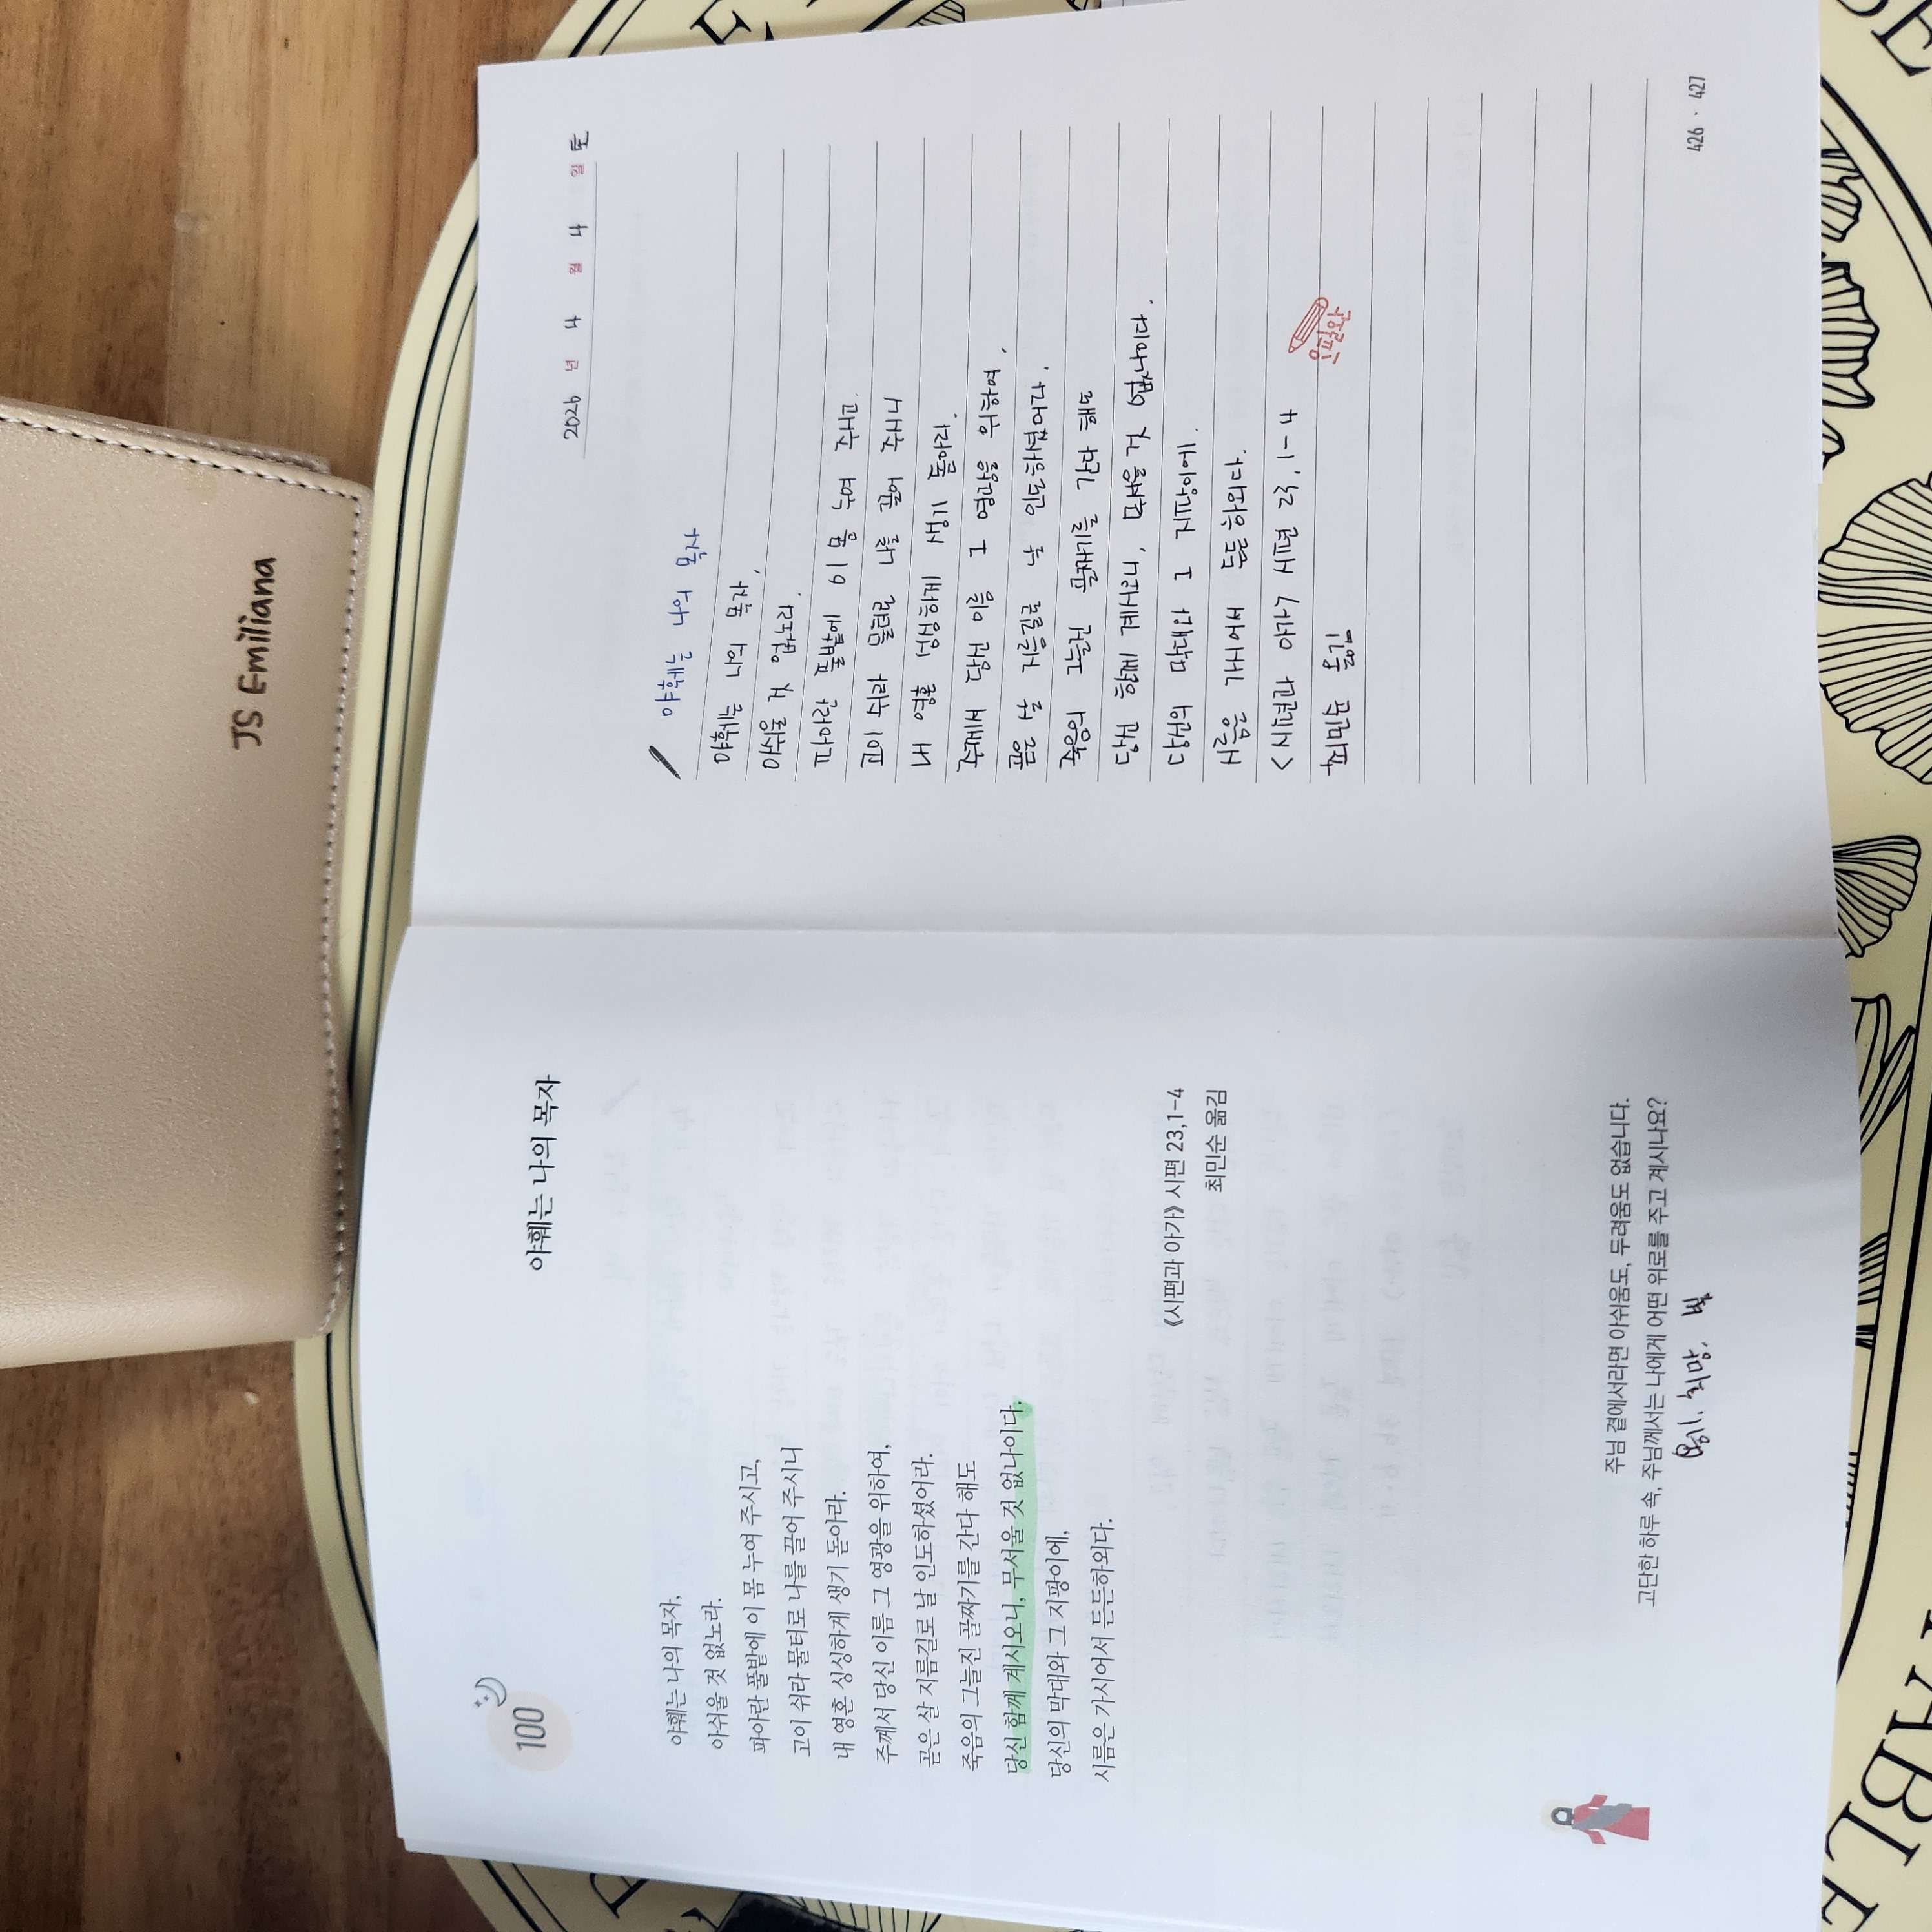 JS Emiliana
100
야훼는 나의 목자
야훼는 나의 목자,
아쉬울 것 없노라.
파아란 풀밭에 이 몸 누여 주시고,
고이 쉬라 물터로 나를 끌어 주시니
내 영혼 싱싱하게 생기 돋아라.
주께서 당신 이름 그 영광을 위하여,
곧은 살 지름길로 날 인도하셨어라.
죽음의 그늘진 골짜기를 간다 해도
당신 함께 계시오니, 무서울 것 없나이다.
당신의 막대와 그 지팡이에,
시름은 가시어서 든든하외다.
《시편과 아가》 시편 23,1-4
최민순 옮김
주님 곁에서라면 아쉬움도, 두려움도 없습니다.
고단한 하루 속, 주님께서는 나에게 어떤 위로를 주고 계시나요?
용기, 희망, 빛
2026 년 4 월 4 일 토
야훼는 나의 목자
야훼는 나의 목자,
아쉬울 것 없노라.
파아란 풀밭에 이 몸 누여 주시고,
고이 쉬라 물터로 나를 끌어 주시니
내 영혼 싱싱하게 생기 돋아라.
주께서 당신 이름 그 영광을 위하여,
곧은 살 지름길로 날 인도하셨어라.
죽음의 그늘진 골짜기를 간다 해도
당신 함께 계시오니, 무서울 것 없나이다.
당신의 막대와 그 지팡이에,
시름은 가시어서 든든하외다.
<시편과 아가> 시편 23,1-4
최민순 옮김
426 · 427
TABLE